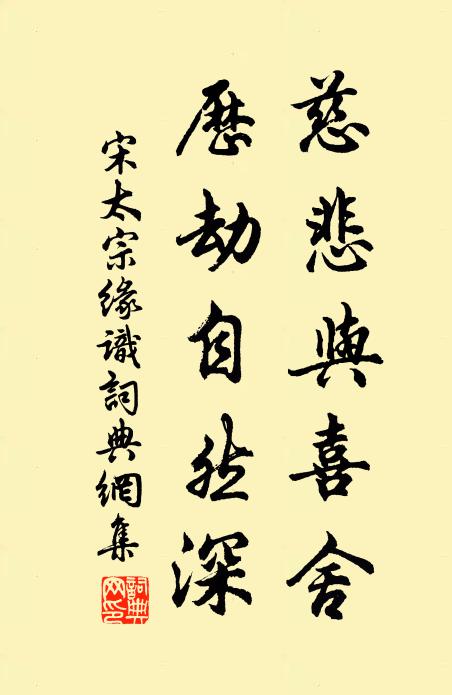 慈悲與喜舍
歷劫自然深
宋太宗緣識詞典網集
詞典網印